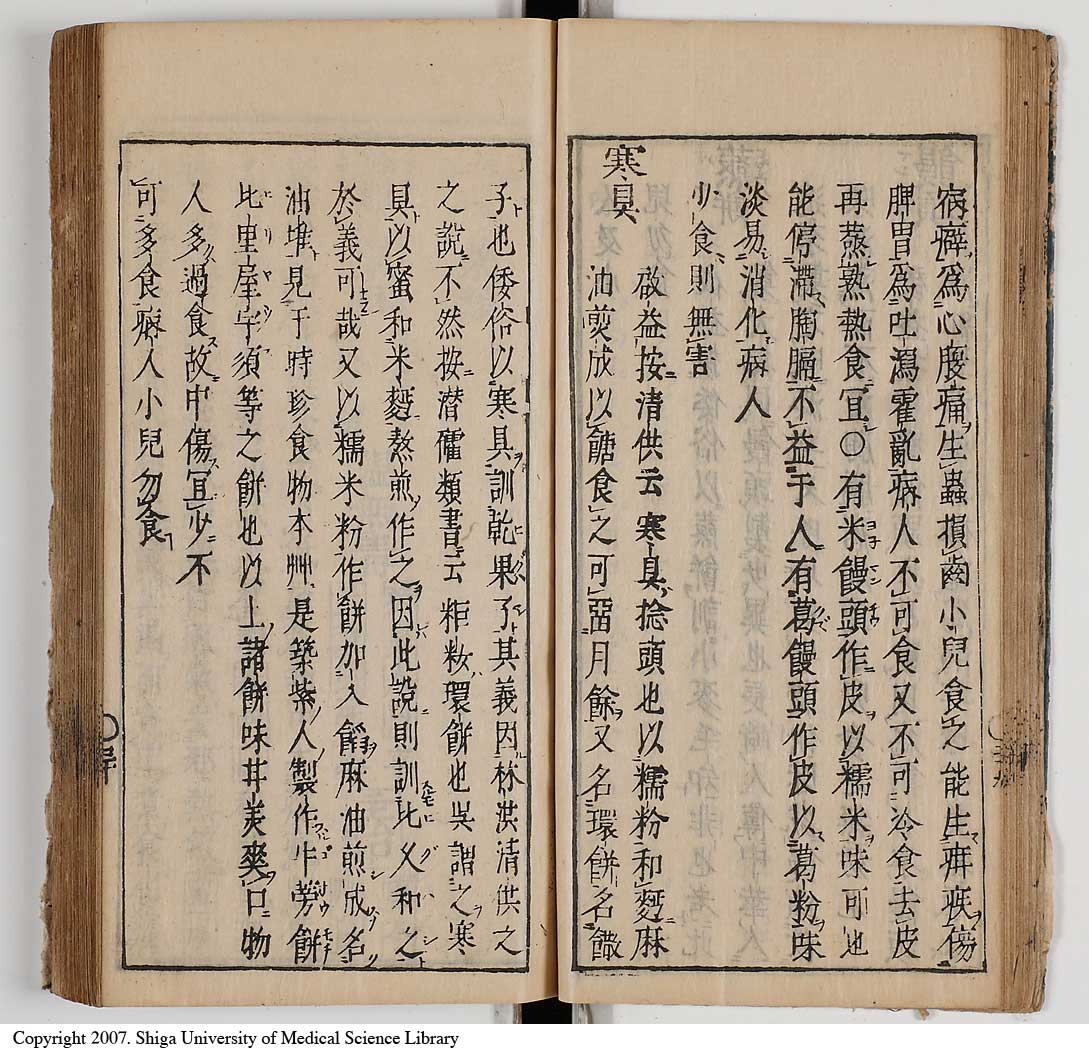 痞癖爲心腹痛生蟲損齒小兒食之能生疳疾傷
脾胃爲吐瀉霍亂病人不可食又不可冷食去皮
再蒸熟熱食宜○有米饅頭作皮以糯米味可也
能停滯胸膈不益于人有葛饅頭作皮以葛粉味
淡易消化病人
少食則無害
寒具
啟益按清供云寒具捻頭也以糯粉和麪麻
油煎成以餹食之可畱月餘又名環餅名饊
子也倭俗以寒具訓乾果子其義因林洪清供之
之說不然按潛雀類書云粔籹環餅也吳謂之寒
具以蜜和米麪熬煎作之因此說則訓比义和之
於義可哉又以糯米粉作餅加入餡麻油煎成名
油堆見于時珍食物本艸是築紫人製作牛蒡餅
比里屋宇須等之餅也以上諸餅味甘美爽口物
人多過食故中傷宜少不
可多食病人小兒勿食
三十
Copyright 2007. Shiga University of Medical Science Library